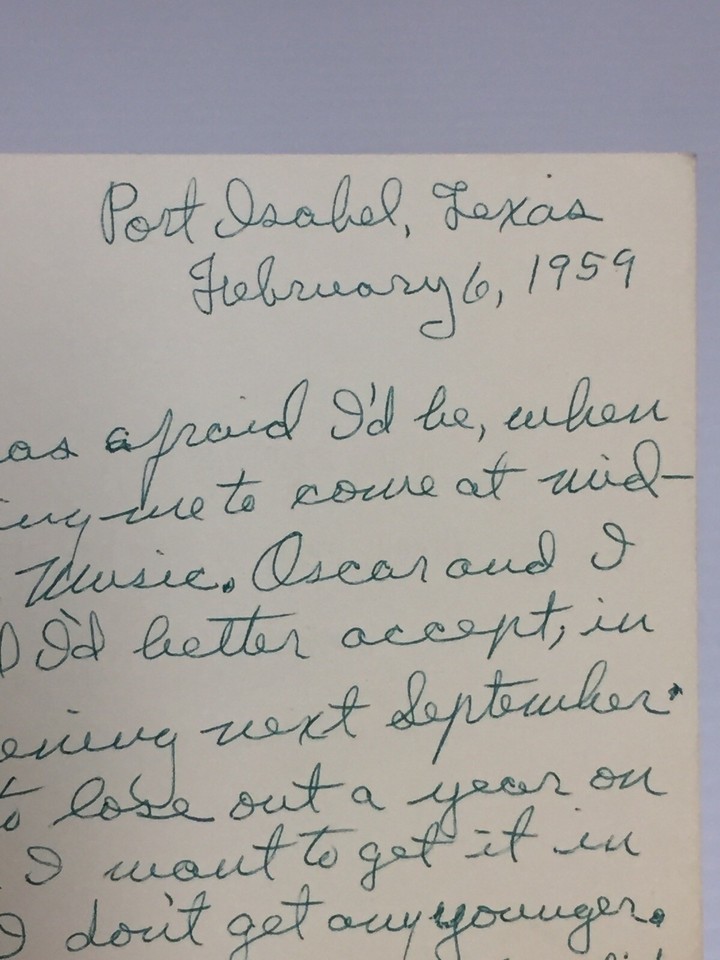 Port Isabel, Texas
February 6, 1959
as afraid I'd be, when
ing me to come at mid-
Music. Oscar and I
I'd better accept, in
ening next September.
to lose out a year on
I want to get it in
I don't get any younger.